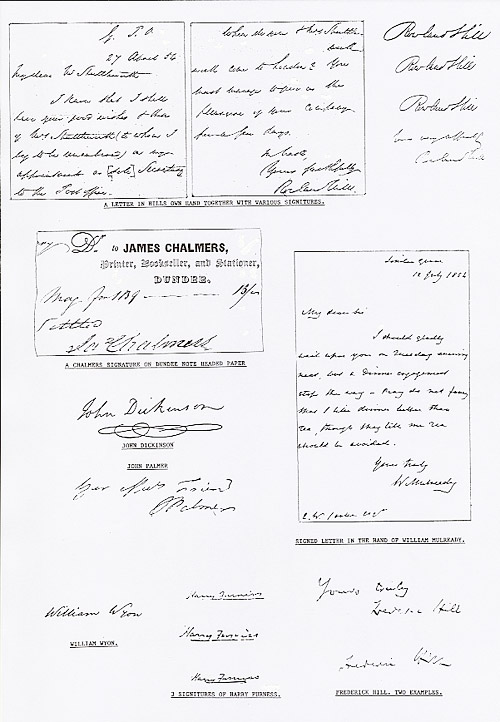 G. P. O
27 April 54
My dear Mr Shuttleworth
I knew that I should
have your good wishes & those
of Mrs Shuttleworth (to whom I
beg to be remembered) on my
appointment as [sole] Secretary
to the Post Office.
When do you & Mrs Shuttle-
worth come to London? You
must manage to give us the
pleasure of your Company
for a few days.
In haste,
Yours faithfully
Rowland Hill.
Rowland Hill
Rowland Hill
Rowland Hill
Rowland Hill
A LETTER IN HILLS OWN HAND TOGETHER WITH VARIOUS SIGNITURES.
Dr. to JAMES CHALMERS,
Printer, Bookseller, and Stationer,
DUNDEE.
May
Settled
Jas Chalmers
A CHALMERS SIGNATURE ON DUNDEE NOTE HEADED PAPER
John Dickinson
JOHN DICKINSON
JOHN PALMER
Friend
J Palmer
July
My dear Sir
I should gladly
wait upon you on Tuesday evening
next, but a dinner engagement
stops the way - Pray do not fancy
that I like dinner better than
tea, though they like me
should be avoided.
Yours truly
W Mulready
SIGNED LETTER IN THE HAND OF WILLIAM MULREADY.
William Wyon
WILLIAM WYON.
Harry Furniss
Harry Furniss
Harry Furniss
3 SIGNITURES OF HARRY FURNESS.
Yours truly
Frederic Hill
Frederic Hill
FREDERICK HILL. TWO EXAMPLES.